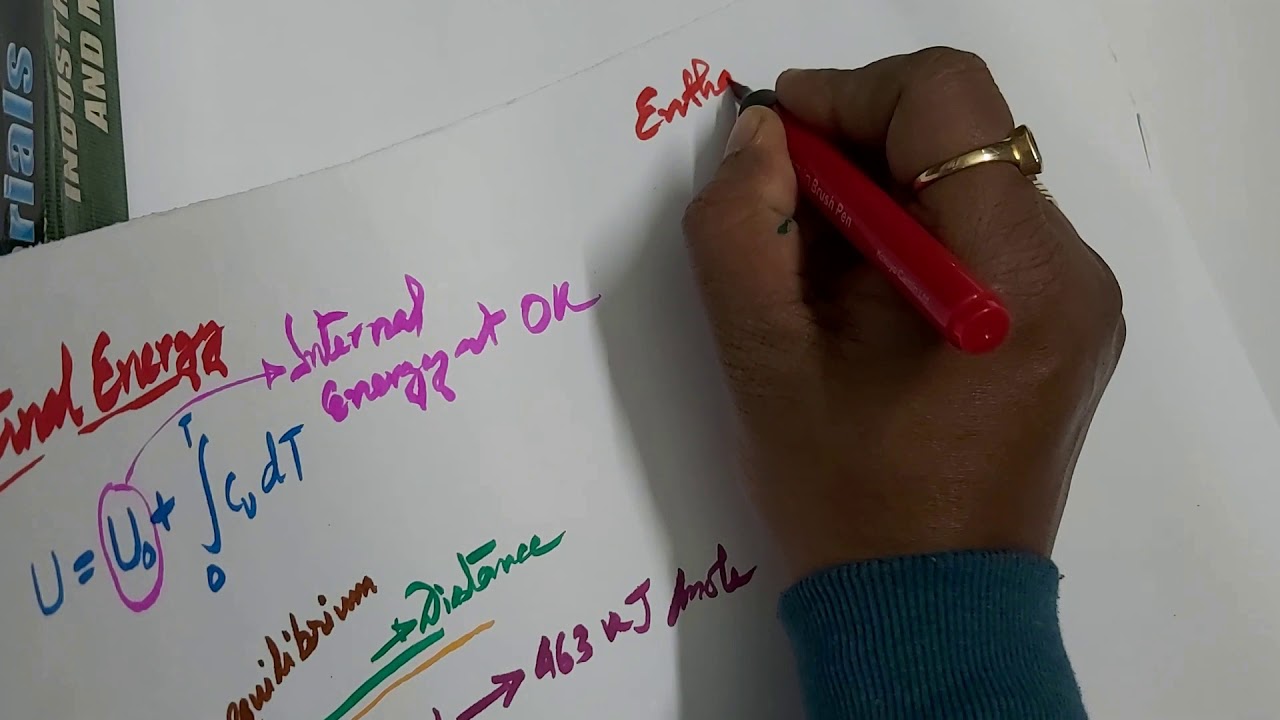 rials
INDUST
AND
Enth
Energy
Internal
energy at 0K
U = U₀ + ∫₀ᵀ Cᵥ dT
equilibrium
→ Distance
→ 463 KJ/mole
Brush Pen